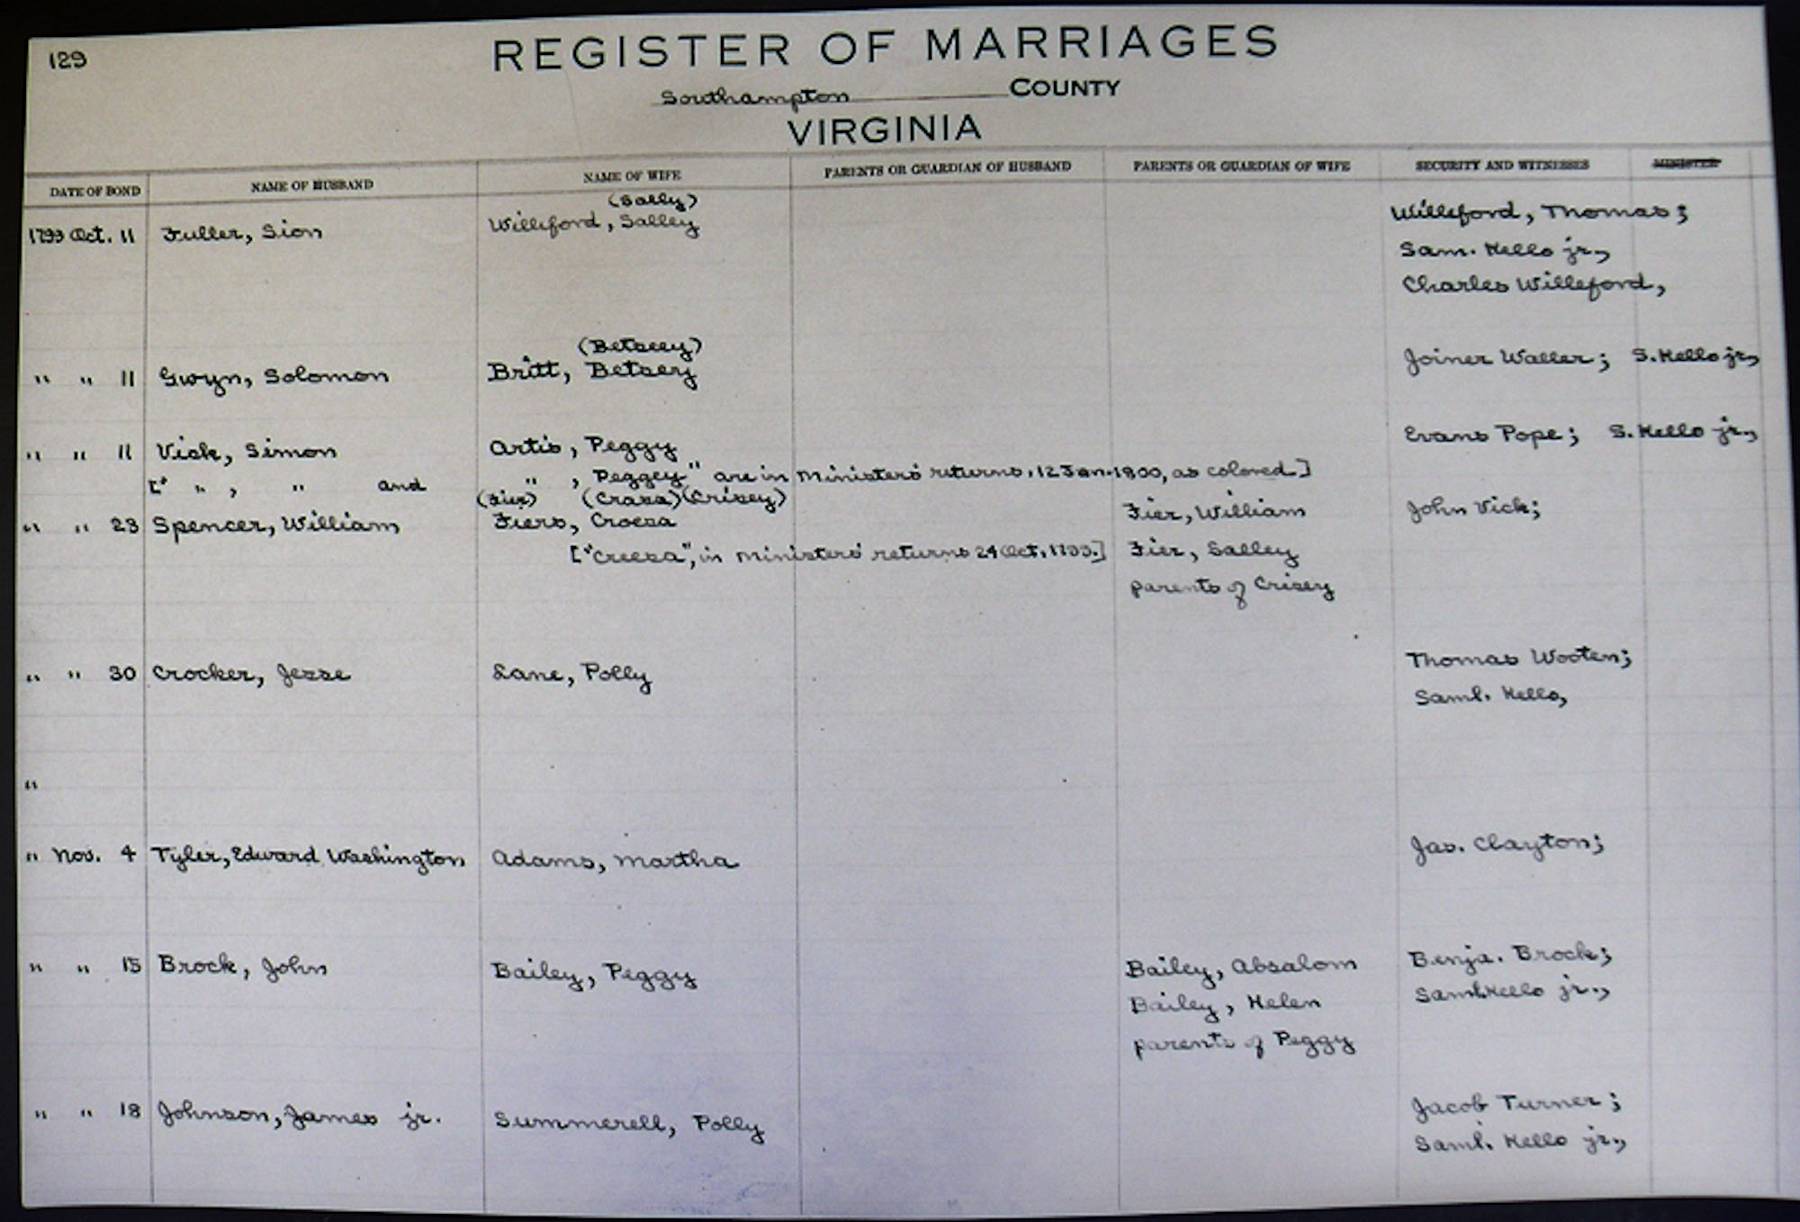 129
REGISTER OF MARRIAGES
Southampton COUNTY
VIRGINIA
DATE OF BOND NAME OF HUSBAND NAME OF WIFE PARENTS OR GUARDIAN OF HUSBAND PARENTS OR GUARDIAN OF WIFE SECURITY AND WITNESSES MINISTER
(Sally)
1799 Oct. 11 Fuller, Sion Williford, Salley Willeford, Thomas;
Sam. Kello jr.,
Charles Willeford,
(Betsey)
" " 11 Gwyn, Solomon Britt, Betsey Joiner Waller; S. Kello jr.,
" " 11 Vick, Simon Artis, Peggy Evans Pope; S. Kello jr.,
[" " , " and " , Peggey" are in Ministers' returns, 12 Jan. 1800, as colored.]
(Fier) (Crasa) (Crisey)
" " 23 Spencer, William Fiers, Croesa Fier, William John Vick;
["Creesa", in Ministers' returns 24 Oct, 1799.] Fier, Salley
parents of Crisey
" " 30 Crocker, Jesse Lane, Polly Thomas Wooten;
Saml. Kello,
"
" Nov. 4 Tyler, Edward Washington Adams, Martha Jas. Clayton;
" " 15 Brock, John Bailey, Peggy Bailey, Absalom Benja. Brock;
Bailey, Helen Saml. Kello jr.,
parents of Peggy
" " 18 Johnson, James jr. Summerell, Polly Jacob Turner;
Saml. Kello jr.,